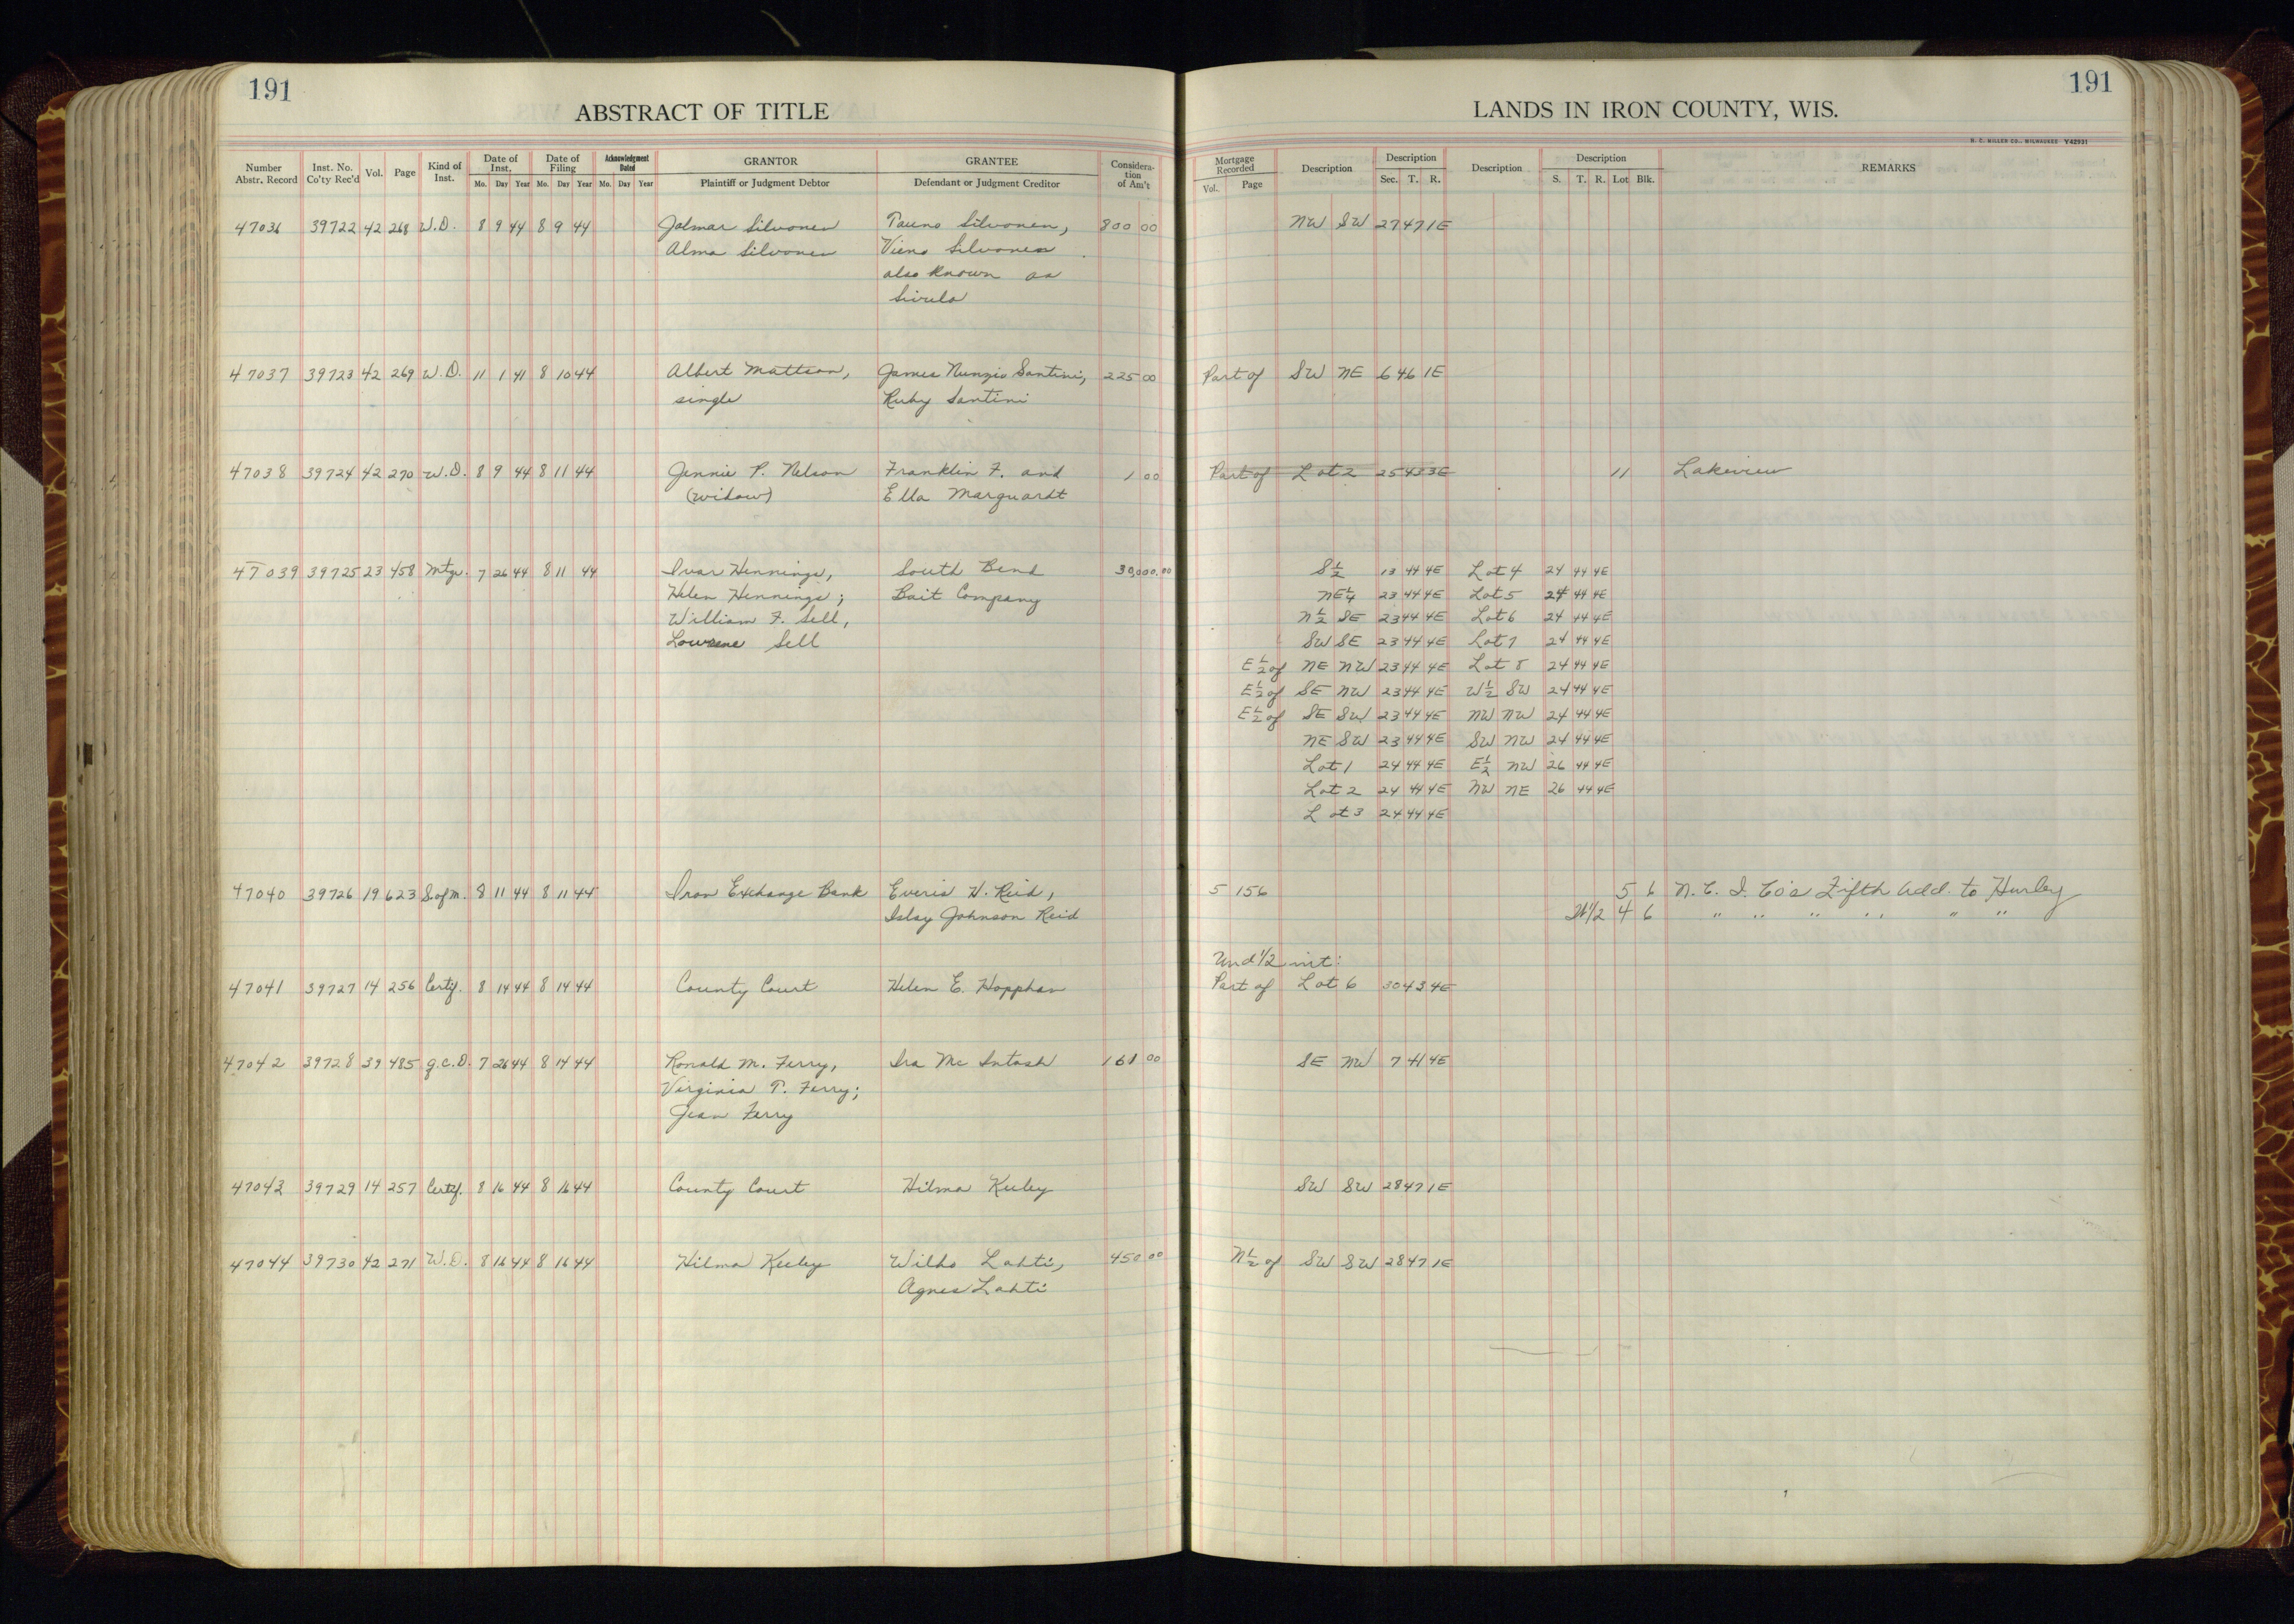 191
ABSTRACT OF TITLE
Number Abstr. Record Inst. No. Co'ty Rec'd Vol. Page Kind of Inst. Date of Inst. Mo. Day Year Date of Filing Mo. Day Year Acknowledgment Dated Mo. Day Year GRANTOR Plaintiff or Judgment Debtor GRANTEE Defendant or Judgment Creditor Considera-tion of Am't
47036 39722 42 268 W.D. 8 9 44 8 9 44 Jalmar Silvonen Tauno Silvonen, 800 00
Alma Silvonen Vieno Silvonen
also known as
Sivula
47037 39723 42 269 W.D. 11 1 41 8 10 44 Albert Mattson, James Nunzio Santini, 225 00
single Ruby Santini
47038 39724 42 270 W.D. 8 9 44 8 11 44 Jennie P. Nelson Franklin F. and 1 00
(widow) Ella Marquardt
47039 39725 23 458 Mtge. 7 26 44 8 11 44 Ivar Hennings, South Bend 30,000.00
Helen Hennings; Bait Company
William F. Sell,
Lowrene Sell
47040 39726 19 623 S.of M. 8 11 44 8 11 44 Iron Exchange Bank Everis H. Reid,
Islay Johnson Reid
47041 39727 14 256 Certif. 8 14 44 8 14 44 County Court Helen E. Hopphan
47042 39728 39 485 Q.C.D. 7 26 44 8 14 44 Ronald M. Ferry, Ira McIntosh 161 00
Virginia T. Ferry;
Jean Ferry
47043 39729 14 257 Certif. 8 16 44 8 16 44 County Court Hilma Keeley
47044 39730 42 271 W.D. 8 16 44 8 16 44 Hilma Keeley Wilho Lahti, 450 00
Agnes Lahti
191
LANDS IN IRON COUNTY, WIS.
H. C. MILLER CO., MILWAUKEE Y42931
Mortgage Recorded Vol. Page Description Description Sec. T. R. Description Description S. T. R. Lot Blk. REMARKS
NW SW 27 47 1E
Part of SW NE 6 46 1E
Part of Lot 2 25 43 3E 11 Lakeview
S½ 13 44 4E Lot 4 24 44 4E
NE¼ 23 44 4E Lot 5 24 44 4E
N½ SE 23 44 4E Lot 6 24 44 4E
SW SE 23 44 4E Lot 7 24 44 4E
E½ of NE NW 23 44 4E Lot 8 24 44 4E
E½ of SE NW 23 44 4E W½ SW 24 44 4E
E½ of SE SW 23 44 4E NW NW 24 44 4E
NE SW 23 44 4E SW NW 24 44 4E
Lot 1 24 44 4E E½ NW 26 44 4E
Lot 2 24 44 4E NW NE 26 44 4E
Lot 3 24 44 4E
5 156 5 6 N. C. I. Co's Fifth Add. to Hurley
W½ 4 6 " " " " " "
Und ½ int:
Part of Lot 6 30 43 4E
SE NW 7 41 4E
SW SW 28 47 1E
N½ of SW SW 28 47 1E